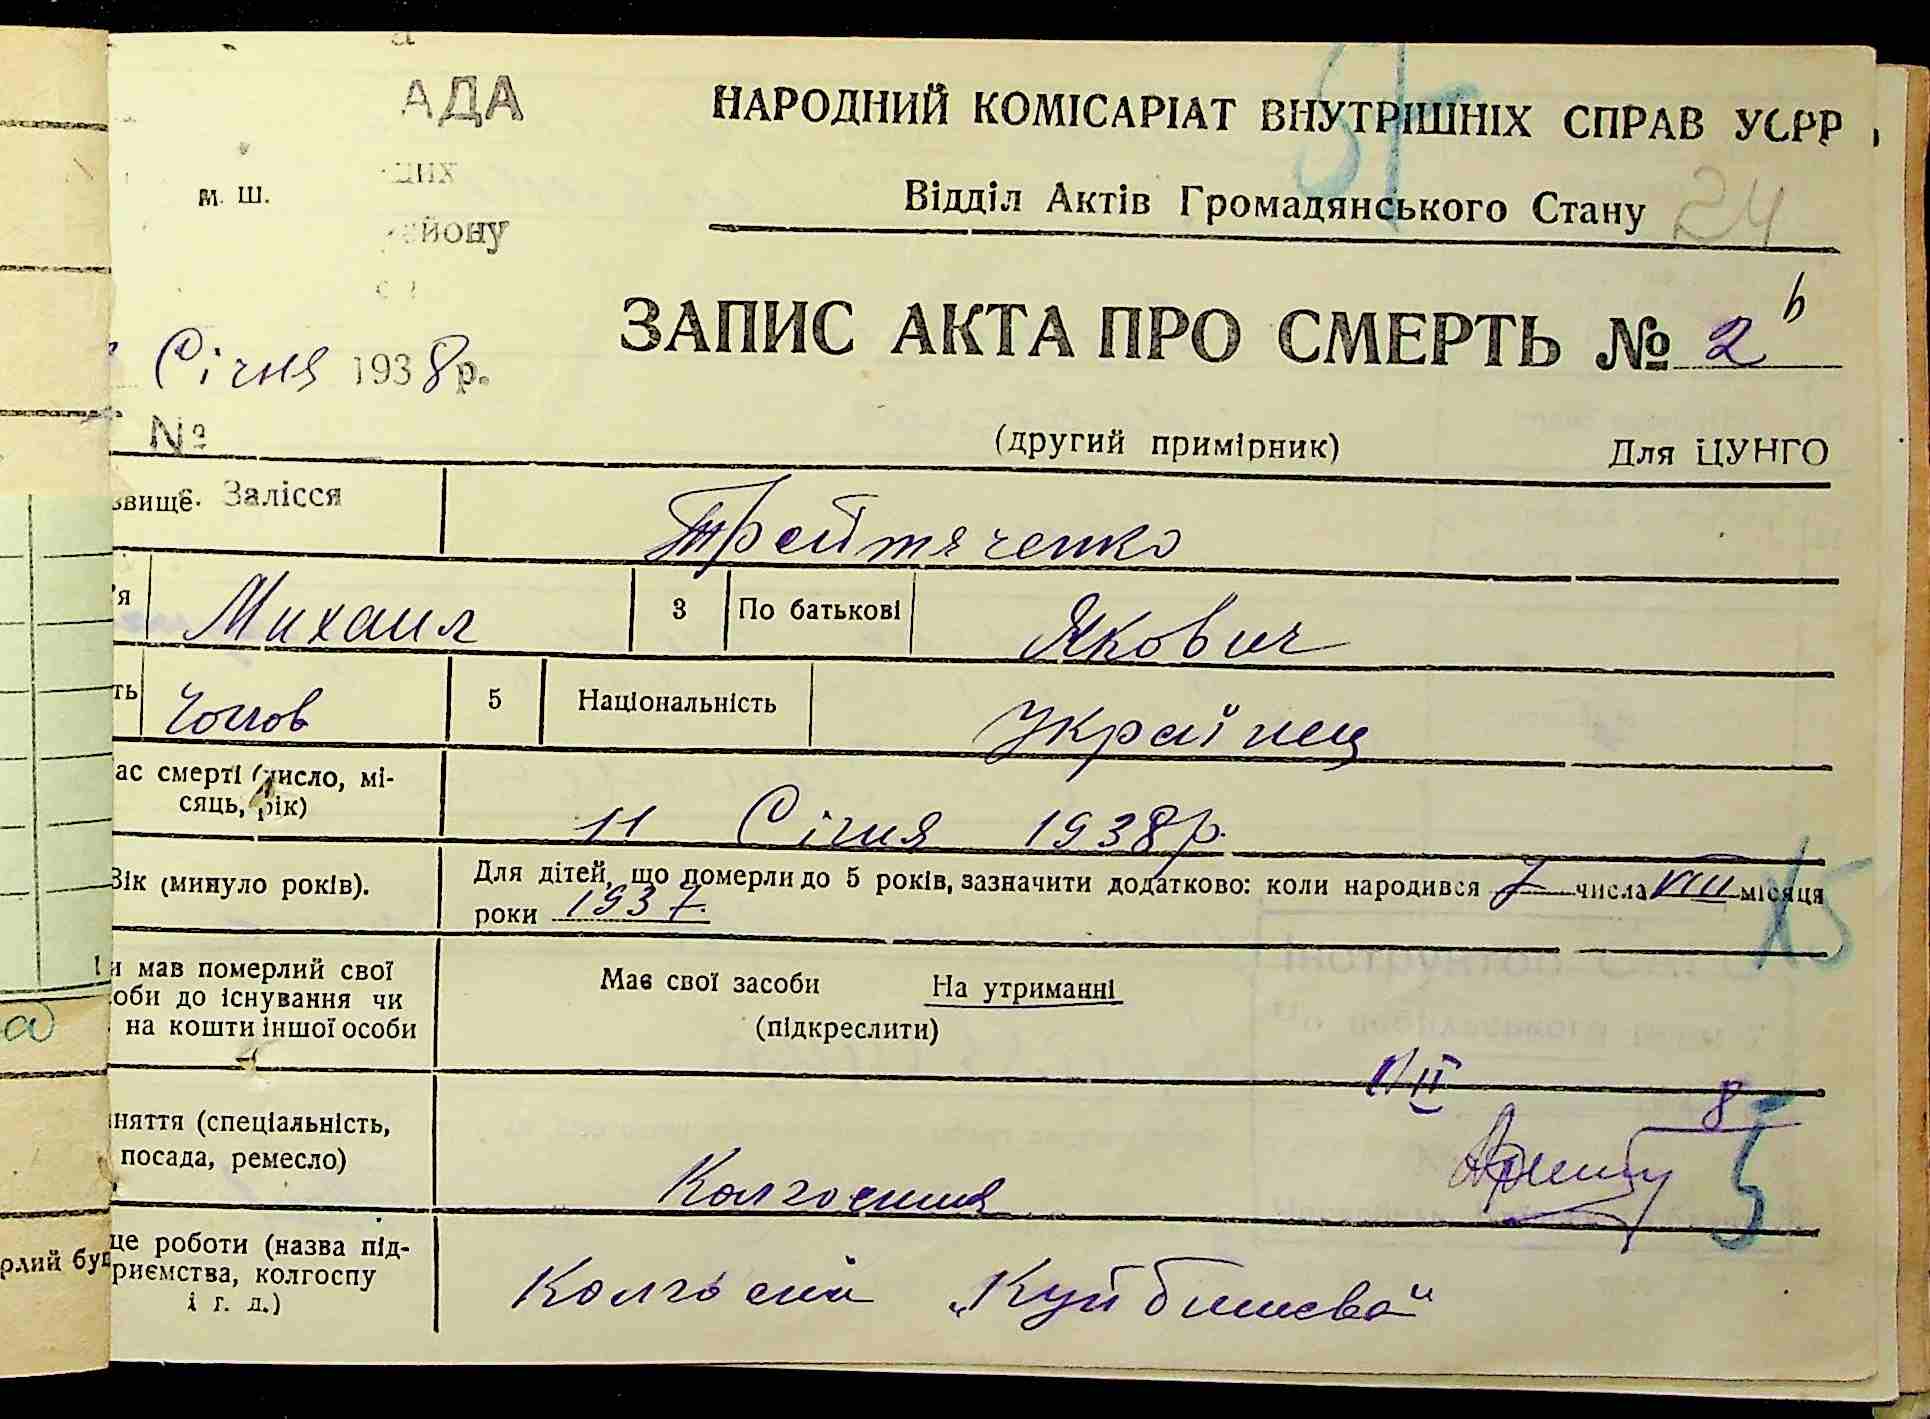 АДА
НАРОДНИЙ КОМІСАРІАТ ВНУТРІШНІХ СПРАВ УСРР
м. Ш.
йону
Відділ Актів Громадянського Стану 24
ЗАПИС АКТА ПРО СМЕРТЬ № 2
Січня 1938 р.
№
(другий примірник) Для ЦУНГО
звище. Залісся
'я Михаил 3 По батькові Якович
ть Чолов 5 Національність Украінец
ас смерті (число, мі-
сяць, рік)
11 Січня 1938 р.
Вік (минуло років).
Для дітей, що померли до 5 років, зазначити додатково: коли народився 7 числа VIII місяця
роки 1937.
и мав померлий свої
оби до існування чи
на кошти іншої особи
Має свої засоби На утриманні
(підкреслити)
няття (спеціальність,
посада, ремесло)
8
5
15
рлий бу
це роботи (назва під-
риємства, колгоспу
і г. д.)
Колгосп „Куйбишева"